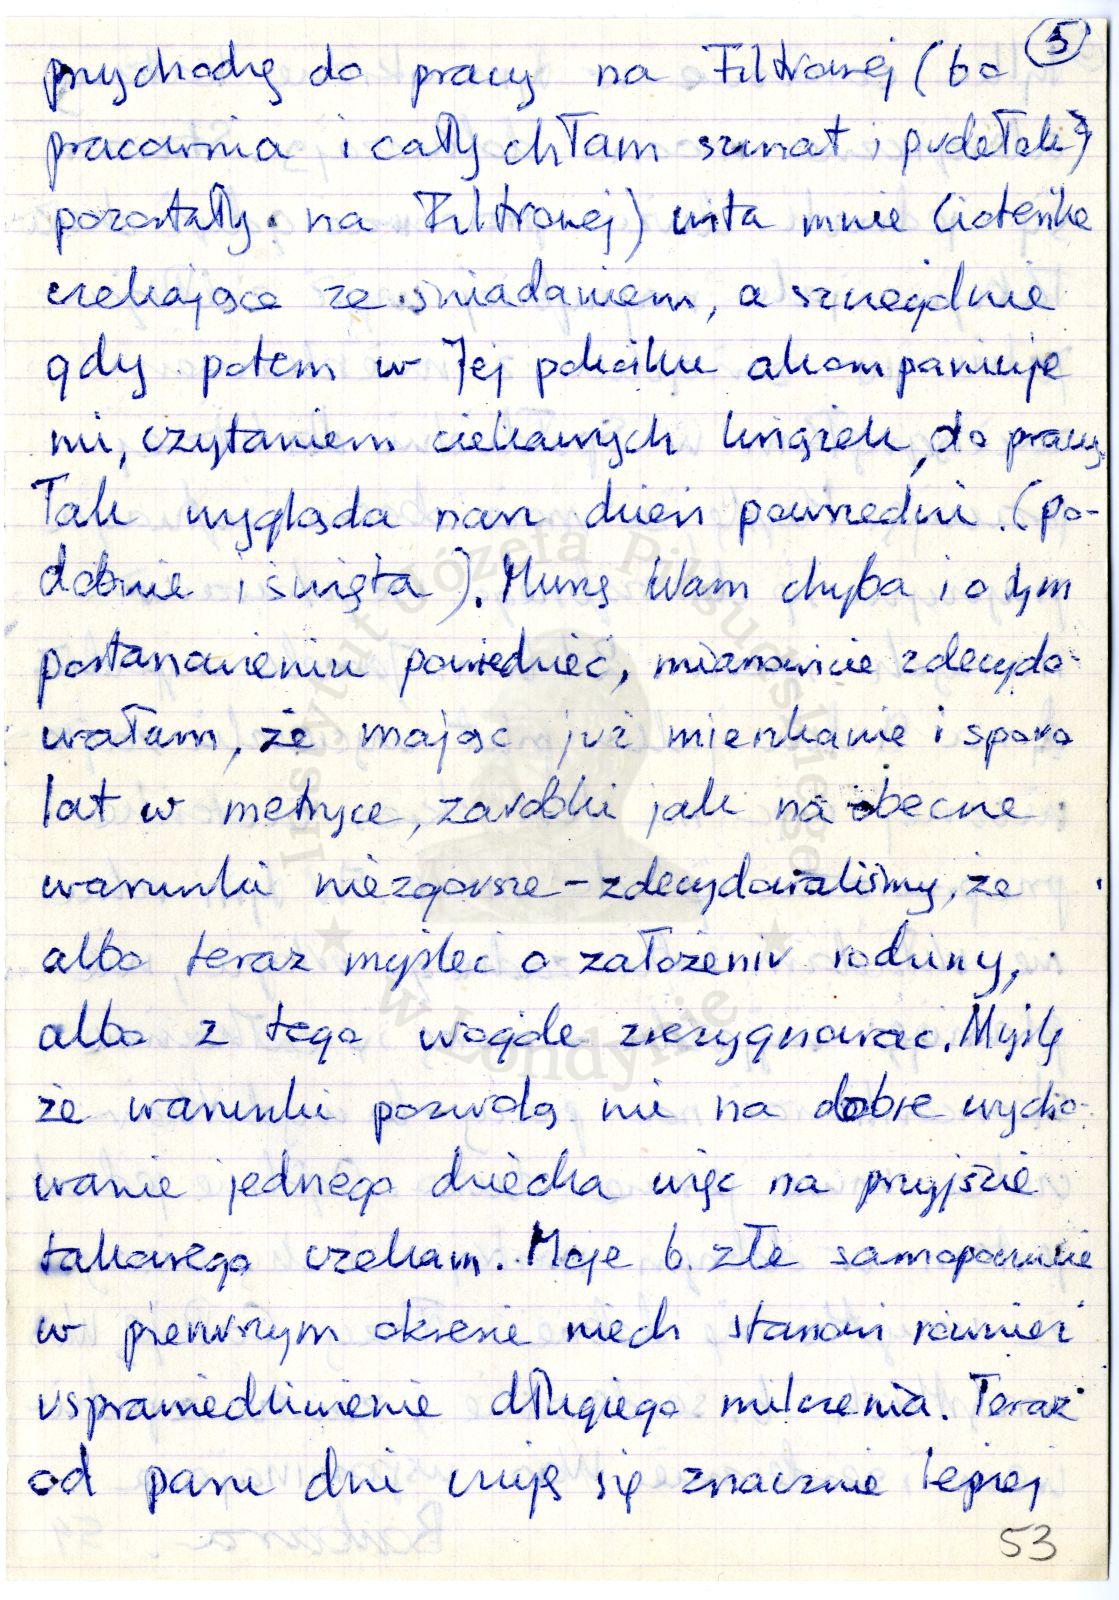 5
przychodzę do pracy na Filtrowej (bo
pracownia i cały chłam szmat i pudełek)
pozostały na Filtrowej) wita mnie Cioteńka
czekająca ze śniadaniem, a szczególnie
gdy potem w Jej pokoiku akompaniuje
mi, czytaniem ciekawych książek, do pracy.
Tak wygląda nasz dzień powszedni. (Po-
dobnie i święta). Muszę Wam chyba i o tym
postanowieniu powiedzieć, mianowicie zdecydo-
wałam, że mając już mieszkanie i sporo
lat w metryce, zarobki jak na obecne
warunki niezgorsze – zdecydowaliśmy, że
albo teraz myśleć o założeniu rodziny,
albo z tego wogóle zrezygnować. Myślę
że warunki pozwolą mi na dobre wycho-
wanie jednego dziecka więc na przyjście
takowego czekam. Moje b. złe samopoczucie
w pierwszym okresie niech stanowi również
usprawiedliwienie długiego milczenia. Teraz
od paru dni czuję się znacznie lepiej
53
Instytut Józefa Piłsudskiego
w Londynie